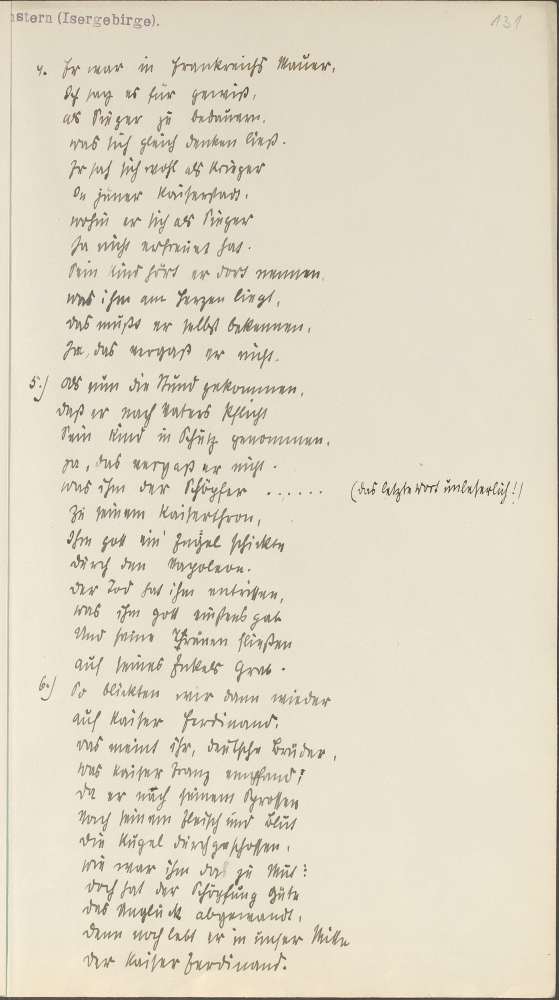 stern (Isergebirge).
131
4. Er war in Frankreichs Mauer,
Ich sag es für gewiß,
als Sieger zu bedauern,
was sich gleich denken ließ.
Er sah sich wohl als Krieger
In jener Kaiserstadt,
wohin er sich als Sieger
Ja nicht erfreuet hat.
Sein Kind hört er dort nennen,
was ihm am Herzen liegt,
das mußt er selbst bekennen,
Ja, das vergaß er nicht.
5.) Als nun die Stund gekommen,
daß er nach Vaters Pflicht
Sein Kind in Schutz genommen,
ja, das vergaß er nicht.
was ihm der Schöpfer ...... (das letzte Wort unleserlich!)
Zu seinem Kaiserthron,
Ihm gott ein Engel schickte
durch den Napoleon.
der Tod hat ihm entrissen,
was ihm gott einstens gab
Und seine Thränen fließen
auf seines Enkels Grab.
6.) So blickten wir dann wieder
auf Kaiser Ferdinand,
was meint ihr, deutsche Brüder,
was Kaiser Franz empfand?
da er nach seinem Sprossen
Nach seinem Fleisch und Blut
die Kugel durchgeschossen,
wie war ihm da zu Mut?
doch hat der Schöpfung Güte
das Unglück abgewandt,
denn noch lebt er in unser Mitte
der Kaiser Ferdinand.